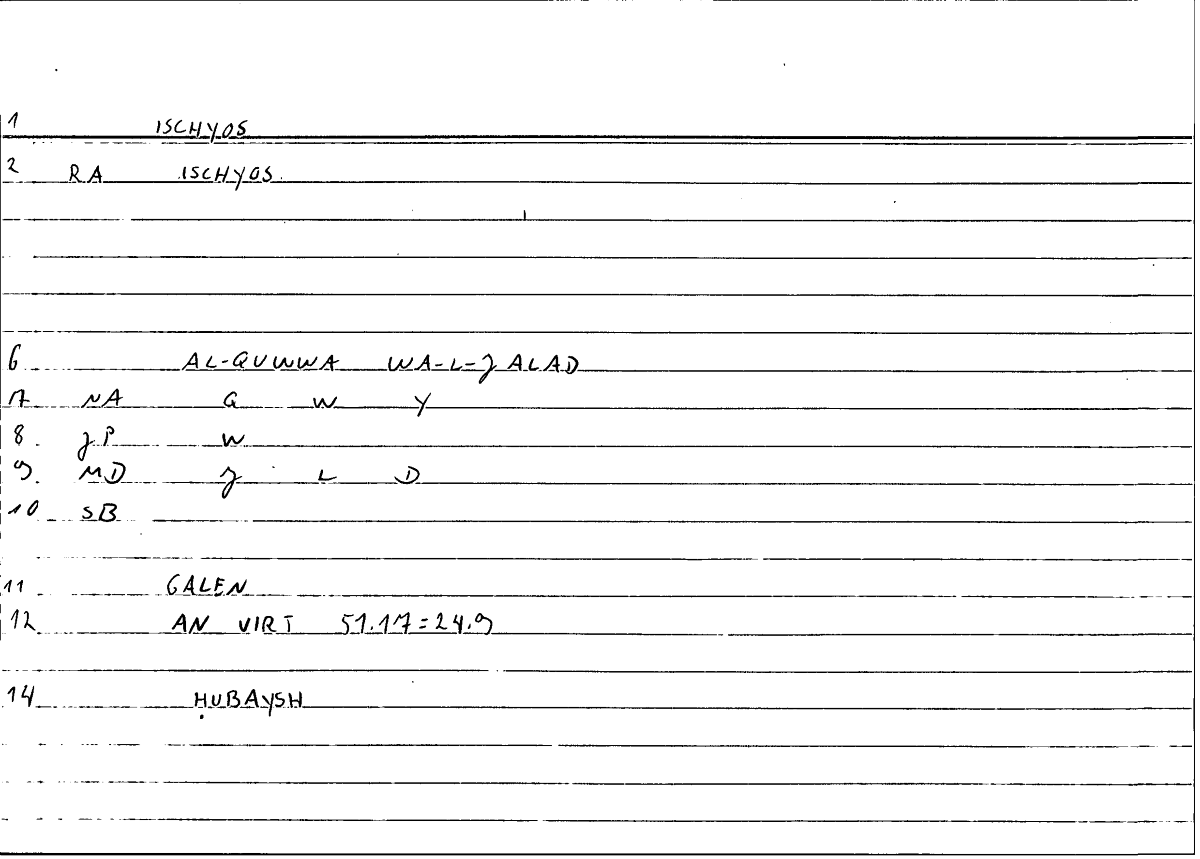 1 ISCHYOS
2 RA ISCHYOS
6 AL-QUWWA WA-L-JALAD
7 NA Q W Y
8. JP W
9. MD J L D
10 SB
11 GALEN
12 AN VIRT 51.17=24.9
14 ḤUBAYSH